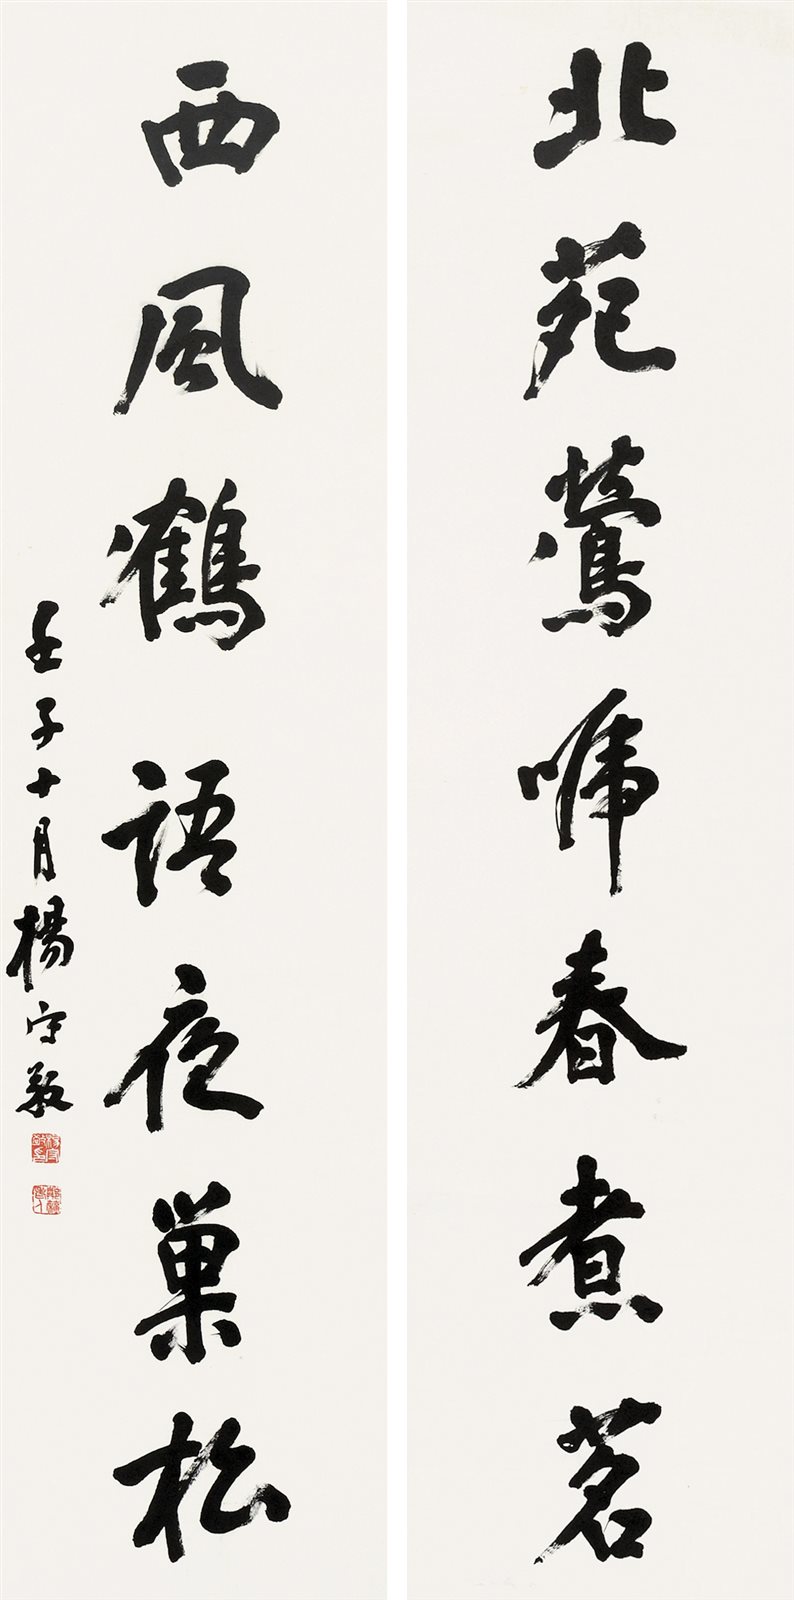 北苑莺啼春煮茗
西風鶴語夜巢松
壬子十月楊守敬